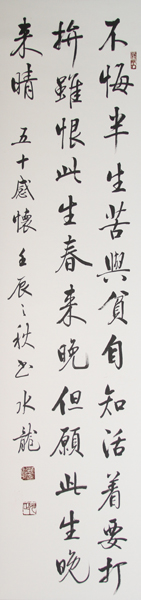 不悔半生苦與貧自知活着要打
拚雖恨此生春来晚但願此生晚
来晴 五十感懷壬辰之秋書水龍